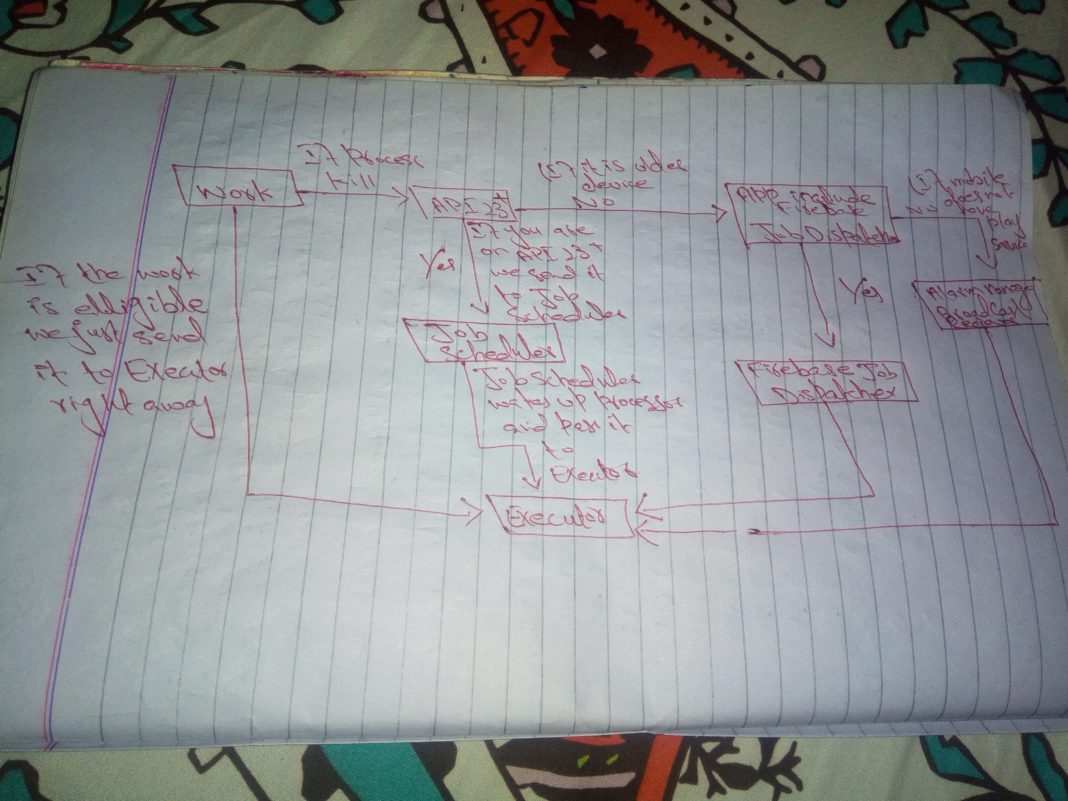 Work
If Process
kill
API 23+
(If) it is older
device
No
APP include
Firebase
Job Dispatcher
(If) mobile
does not
No have
play
service
If the work
is elligible
we just send
it to Executor
right away
Yes
If you are
on API 23+
we send it
to Job
Scheduler
Job
Scheduler
Yes
Alarm manager
Broadcast
Job Scheduler
wakes up processor
and pass it
to
Executor
Firebase Job
Dispatcher
Executor